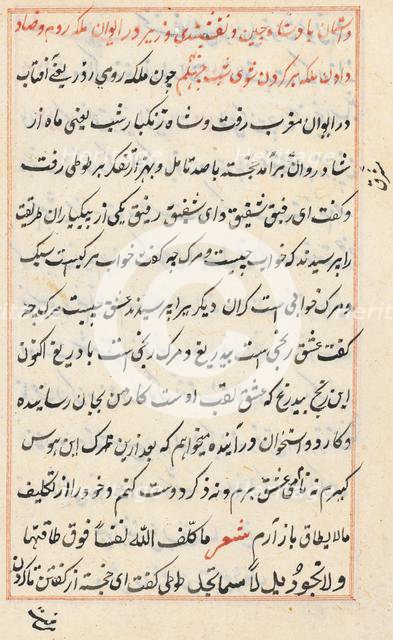 داستان پادشاه چین و نقشبندی وزیر در ایوان ملکه روم و صاد
دادن ملکه بر کردن شوی شب چهلم چون ملکه رومی روز یعنی آفتاب
در ایوان مغرب رفت و شاه زنگبار شب یعنی ماه از
شادروان برآمد خجسته با صد تامل و بهزار تفکر بر طوطی رفت
و گفت ای رفیق شفیق و ای شفیق رفیق یکی از پیکیاران طریقت
را پرسیدند که خواب چیست و مرگ چه گفت خواب مرگیست سبک
و مرگ خوابی است گران دیگر یرا پرسیدند عشق چیست مرگ چه
گفت عشق رنجی است بیدریغ و مرگ رنجی است با دریغ اکنون
این رنج بیدریغ که عشق لقب اوست کار من بجان رسانیده
و کارد و استخوان در آینده میخواهم که بعد ازین ترک این هوس
گیرم نه نام عشق برم و نه ذکر دوست کنم و خود را از تکلیف
مالایطاق باز آرم شعر ما کلّف الله نفسًا فوق طاقتها
و لا تجود ید الّا بما تجد طوطی گفت ای خجسته از گفتن تا کردن
مشرق